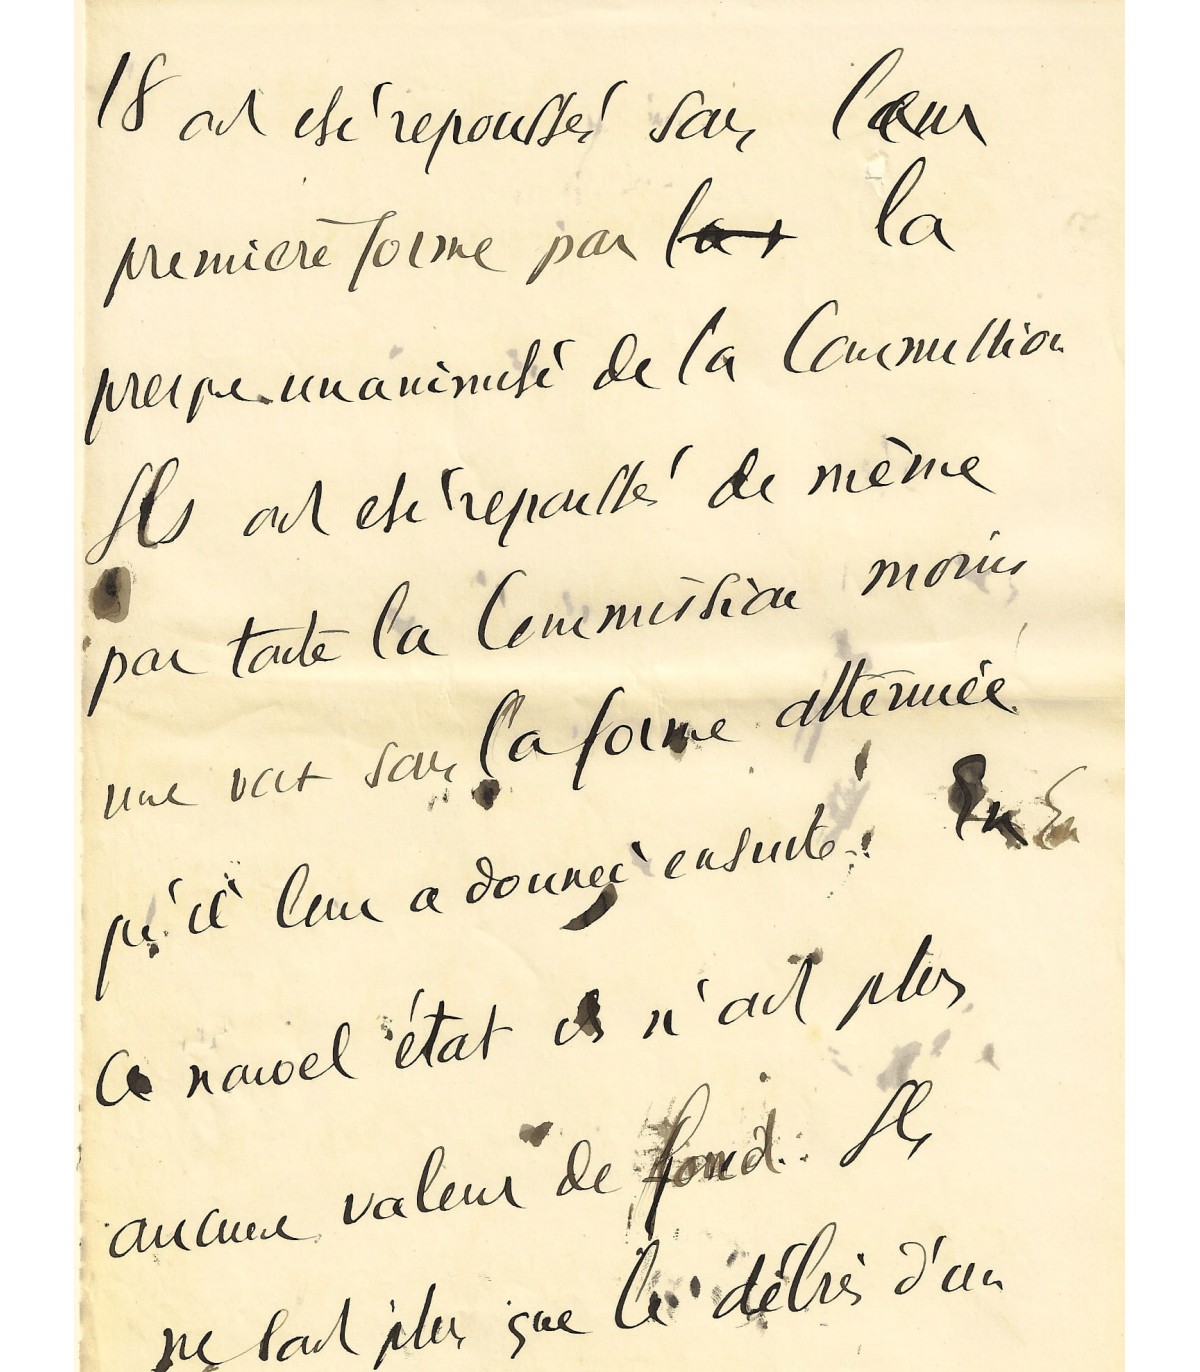 18 ont été repoussés sous leur
première forme par la la
presque unanimité de la Commission
Ils ont été repoussés de même
par toute la Commission moins
une voix sous la forme atténuée
qu'il leur a donnée ensuite. En En
ce nouvel état ils n'ont plus
aucune valeur de fond. Ils
ne sont plus que le débris d'un